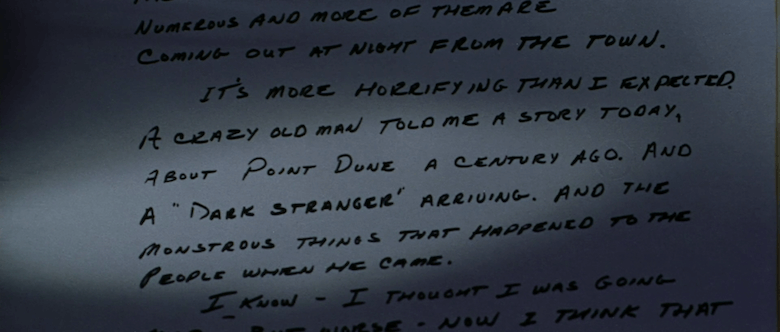 NUMEROUS AND MORE OF THEM ARE
COMING OUT AT NIGHT FROM THE TOWN.
IT'S MORE HORRIFYING THAN I EXPECTED.
A CRAZY OLD MAN TOLD ME A STORY TODAY,
ABOUT POINT DUNE A CENTURY AGO. AND
A "DARK STRANGER" ARRIVING. AND THE
MONSTROUS THINGS THAT HAPPENED TO THE
PEOPLE WHEN HE CAME.
I KNOW - I THOUGHT I WAS GOING
WORSE - NOW I THINK THAT